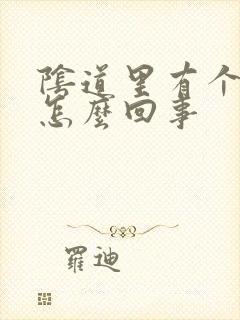 陰道里有个
怎麼回事
羅迪